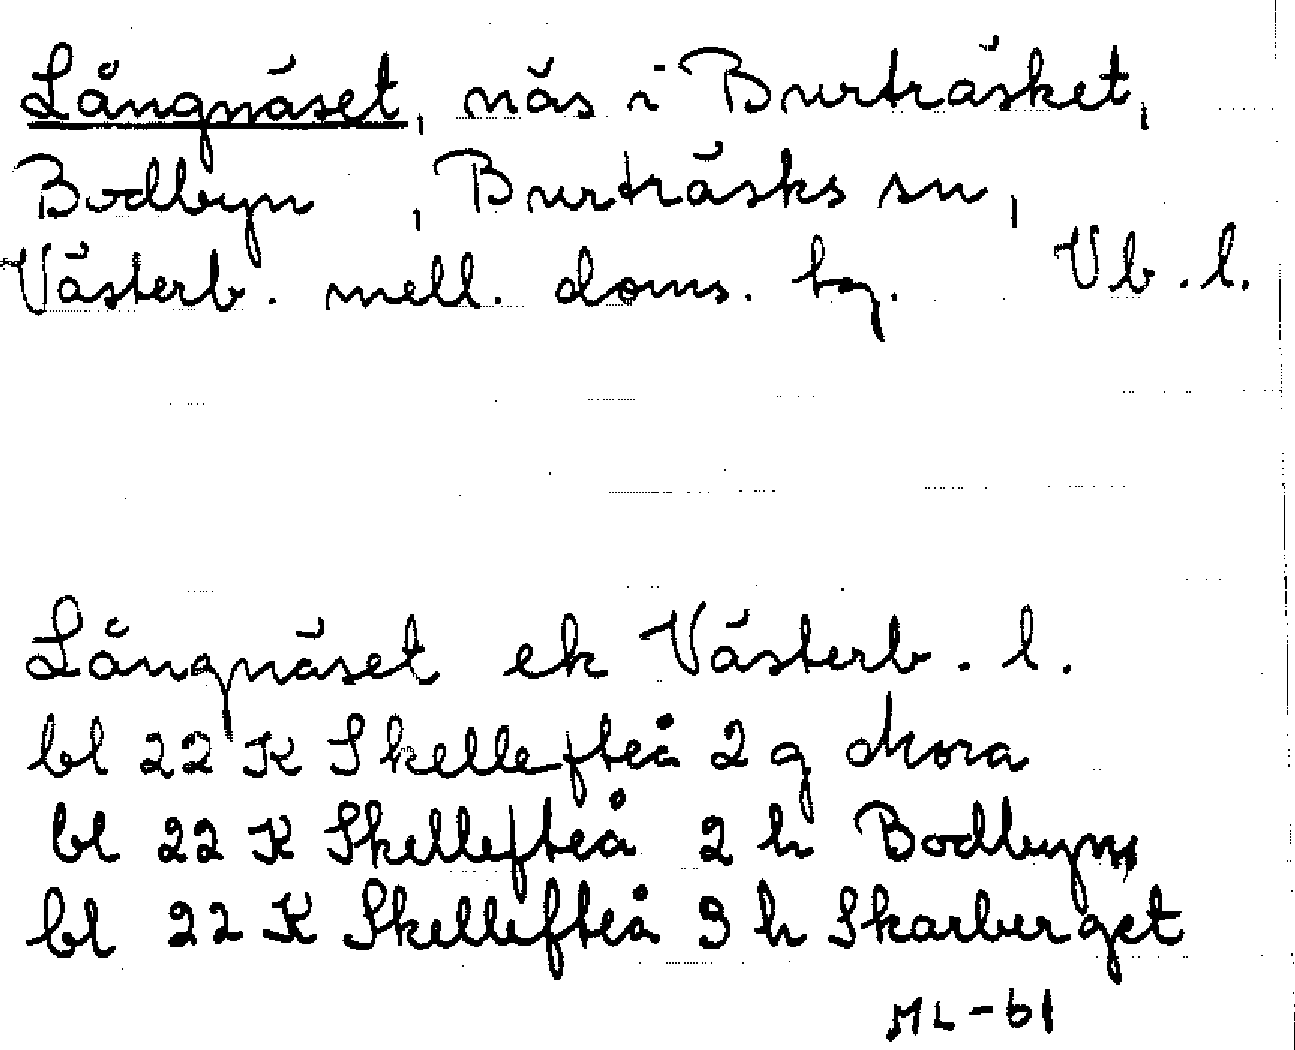 Långnäset, näs i Burträsket,
Bodbyn, Burträsks sn,
Västerb. mell. doms. tg. Vb. l.
Långnäset ek Västerb. l.
bl 22 K Skellefteå 2 g Mora
bl 22 K Skellefteå 2 h Bodbyn,
bl 22 K Skellefteå 3 h Skarberget
ML-61